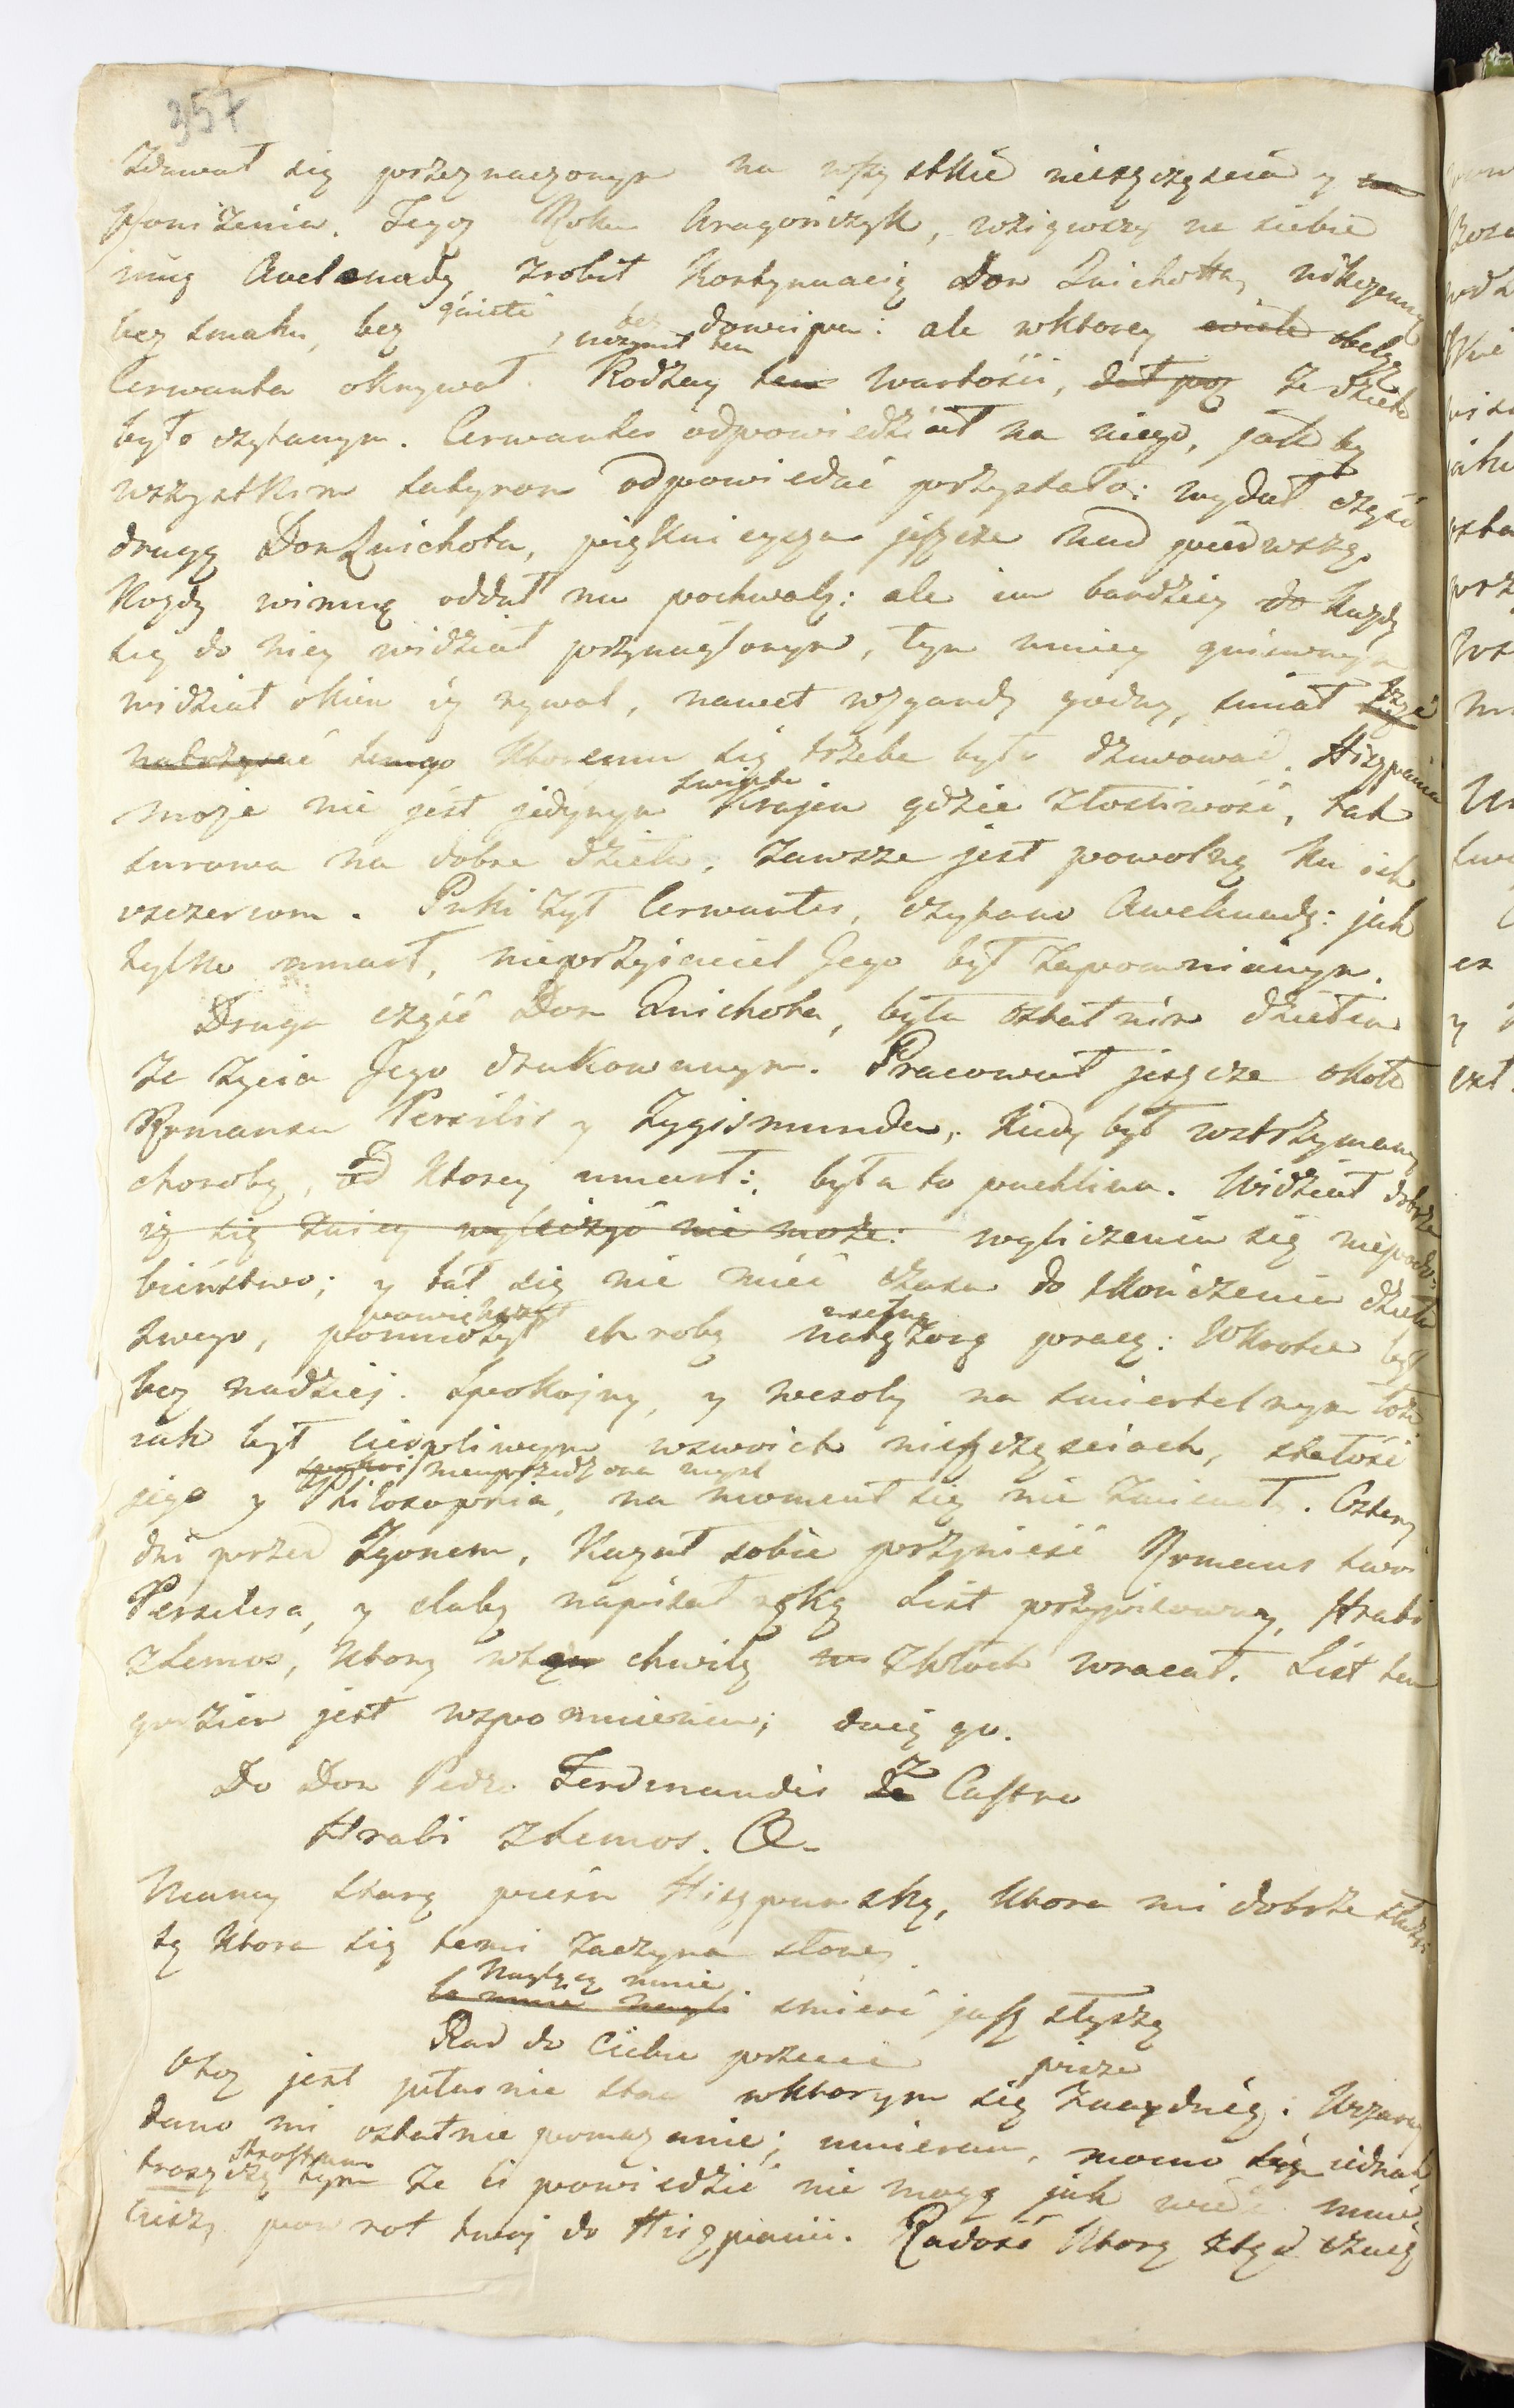 357
Zdawał się przeznaczonym na wszystkie nieszczęścia y
Poniżenia. Tegoż Roku Aragończyk, wziąwszy na siebie
imię Avelanady, zrobił Kontynuacią Don Quichotta, nikczemną
bez smaku, bez guśtu, bez dowcipu: ale wktorey wiele obelg
Cerwanta okrywał. uczynił ten Rodzay ten wartości, dał poz że dzieło
było czytanym. Cerwantes odpowiedział na niego, jak by
wszystkim satyrom odpowiedać przystało: wydał część
drugą Don Quichota, pięknieyszą jeszcze nad pierwszą.
Kożdy winną oddał mu pochwałę: ale im bardziey do każdy
się do niey widział przynaglonym, tym mniey gniewnym
widział okiem iż rywal, nawet wzgardy godny, śmiał
temgo ktoremu się trzeba było dziwować. Hiszpania
moja nie jest jedynym świata Krajem gdzie złośliwość, tak
surowa na dobre dzieła, zawsze jest powolną ku ich
uszczercom. Puki żył Cerwantes, czytano Awelanadę: jak
tylko umarł, nieprzyiaciel Jego był zapomnianym.
Druga część Don Quichota, była ostatnim dziełem
Ze życia Jego drukowanym. Pracował jeszcze około
Romansu Persilis y Zygismunda, kiedy był wstrzymany
chorobą, od ktorey umarł: była to puchlina. Widział dobrze
iż się zniey wyleczyć nie może: wyliczenia się niepodo-
bieństwo; y bał się nie mieć czasu do skończenia dzieła
swego, pomnożył powiększył chorobę natężoną pracą: Wkrotce był
bez nadziej. Spokojny, y wesoły na śmiertelnym łożu
iak był cierpliwym wswoich nieszczęściach, stałość
jego y Philosophia, na moment się nie zmieniła. Cztery
dni przed Zgonem, Kazał sobie przynieść Romans swoi
Persilesa, y słabą napisał ręką List przypisowny, Hrabi
z Lemos, ktory wtę chwilę z Włoch wracał. List ten
godzien jest wspomnienia; daię go.
Do Don Pedr. Ferdinandis de z Castro
Hrabi z Lemos. &.
Mamy starą pieśn Hiszpanską, ktora mi dobrze służy
tę ktora się temi zaczyna słowy.
Naglącą mnie
bo mnie nagli śmierć jusz słyszę
Rad do Ciebie przecie pisze
Otoż jest własnie stan wktorym się znayduię: Wczoray
dano mi ostatnie pomazanie; umieram, mocno się iednak
troszczę tym że ci powiedzieć nie mogę jak wiele mnie
cieszy powrot twoj do Hiszpanii. Radość ktorą ztąd czuię